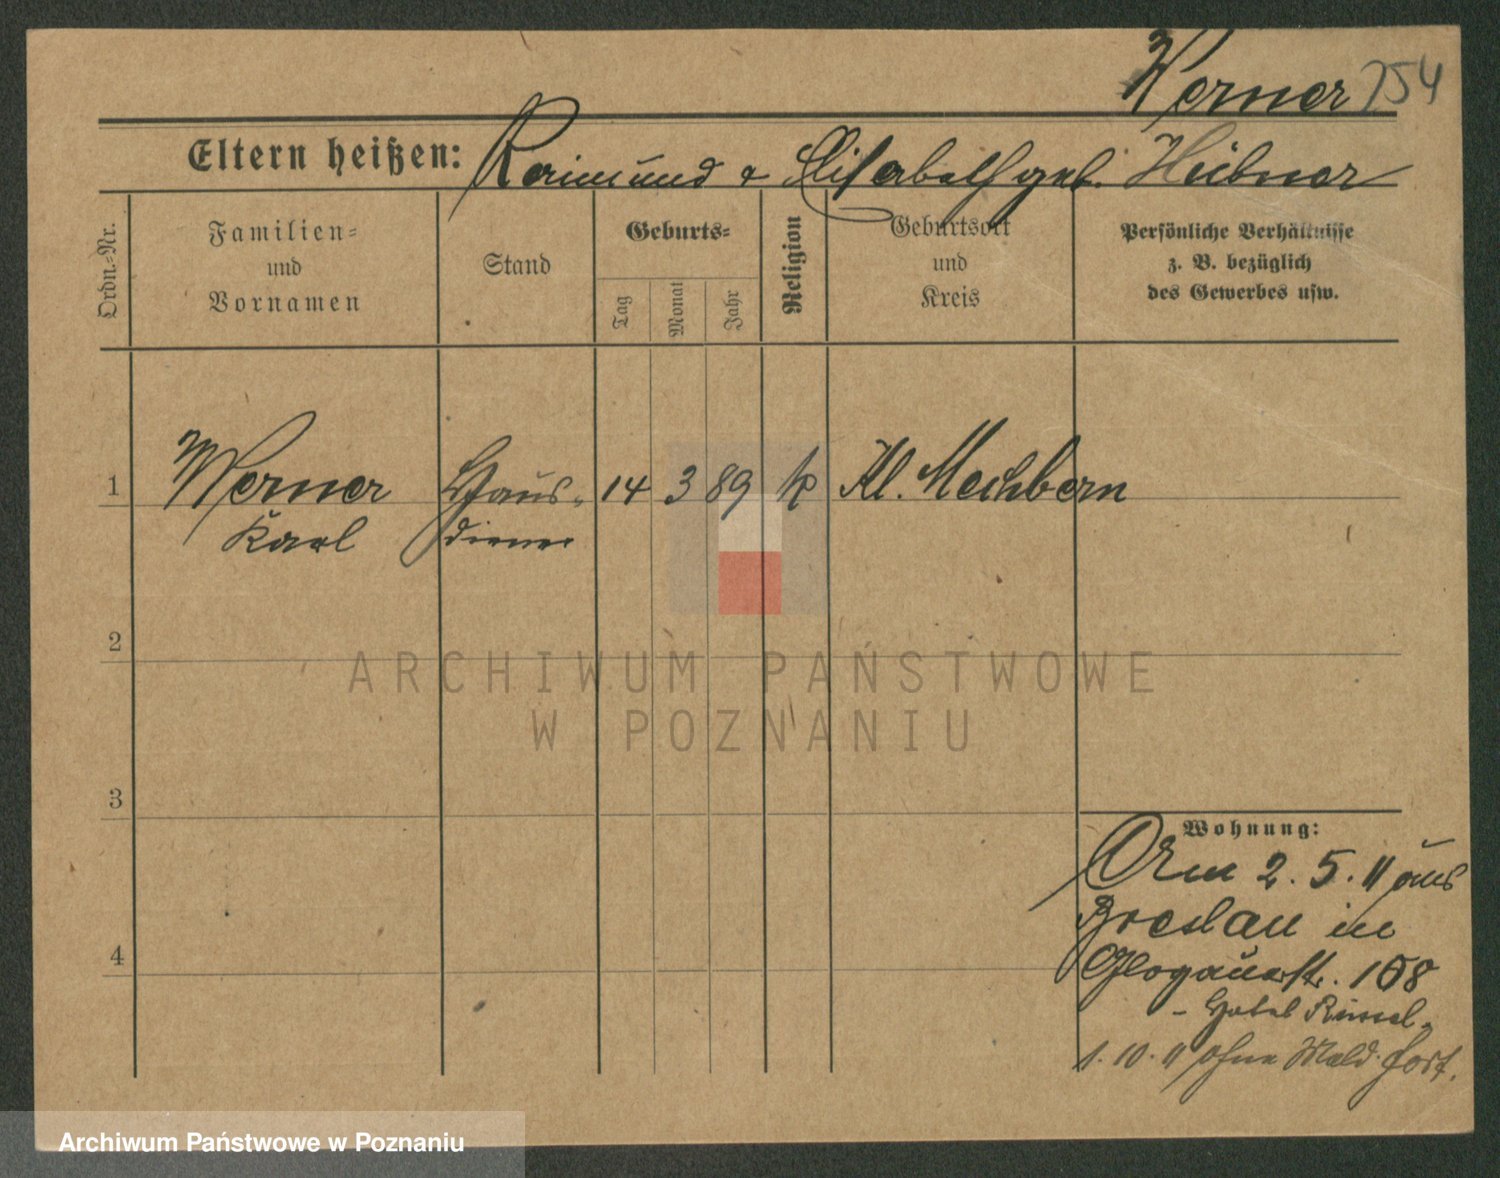 Werner 754
Eltern heißen: Raimund & Elisabeth geb. Hübner
Ordn.-Nr.
Familien-
und
Vornamen
Stand
Geburts-
Tag
Monat
Jahr
Religion
Geburtsort
und
Kreis
Persönliche Verhältnisse
z. B. bezüglich
des Gewerbes usw.
1 Werner Haus- 14 3 89 k Kl. Mochbern
Karl diener
2
ARCHIWUM PAŃSTWOWE
W POZNANIU
3
Wohnung:
2. 5. 11 aus
Breslau in
4
Glogauerstr. 108
- Hotel
1. 10. 11 ohne Meld. fort.
Archiwum Państwowe w Poznaniu